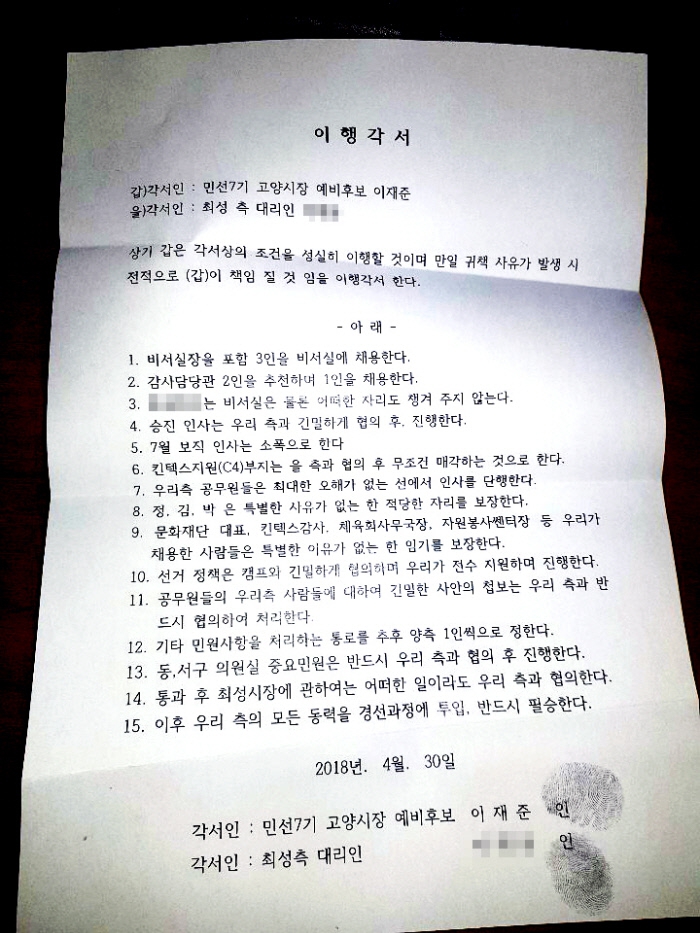 이행각서
갑)각서인 : 민선7기 고양시장 예비후보 이재준
을)각서인 : 최성 측 대리인
상기 갑은 각서상의 조건을 성실히 이행할 것이며 만일 귀책 사유가 발생 시
전적으로 (갑)이 책임 질 것 임을 이행각서 한다.
- 아 래 -
1. 비서실장을 포함 3인을 비서실에 채용한다.
2. 감사담당관 2인을 추천하며 1인을 채용한다.
3. 는 비서실은 물론 어떠한 자리도 챙겨 주지 않는다.
4. 승진 인사는 우리 측과 긴밀하게 협의 후, 진행한다.
5. 7월 보직 인사는 소폭으로 한다
6. 킨텍스지원(C4)부지는 을 측과 협의 후 무조건 매각하는 것으로 한다.
7. 우리측 공무원들은 최대한 오해가 없는 선에서 인사를 단행한다.
8. 정, 김, 박 은 특별한 사유가 없는 한 적당한 자리를 보장한다.
9. 문화재단 대표, 킨텍스감사, 체육회사무국장, 자원봉사쎈터장 등 우리가
채용한 사람들은 특별한 이유가 없는 한 임기를 보장한다.
10. 선거 정책은 캠프와 긴밀하게 협의하며 우리가 전수 지원하며 진행한다.
11. 공무원들의 우리측 사람들에 대하여 긴밀한 사안의 첩보는 우리 측과 반
드시 협의하여 처리한다.
12. 기타 민원사항을 처리하는 통로를 추후 양측 1인씩으로 정한다.
13. 동,서구 의원실 중요민원은 반드시 우리 측과 협의 후 진행한다.
14. 통과 후 최성시장에 관하여는 어떠한 일이라도 우리 측과 협의한다.
15. 이후 우리 측의 모든 동력을 경선과정에 투입, 반드시 필승한다.
2018년. 4월. 30일
각서인 : 민선7기 고양시장 예비후보 이 재 준 인
각서인 : 최성측 대리인 인